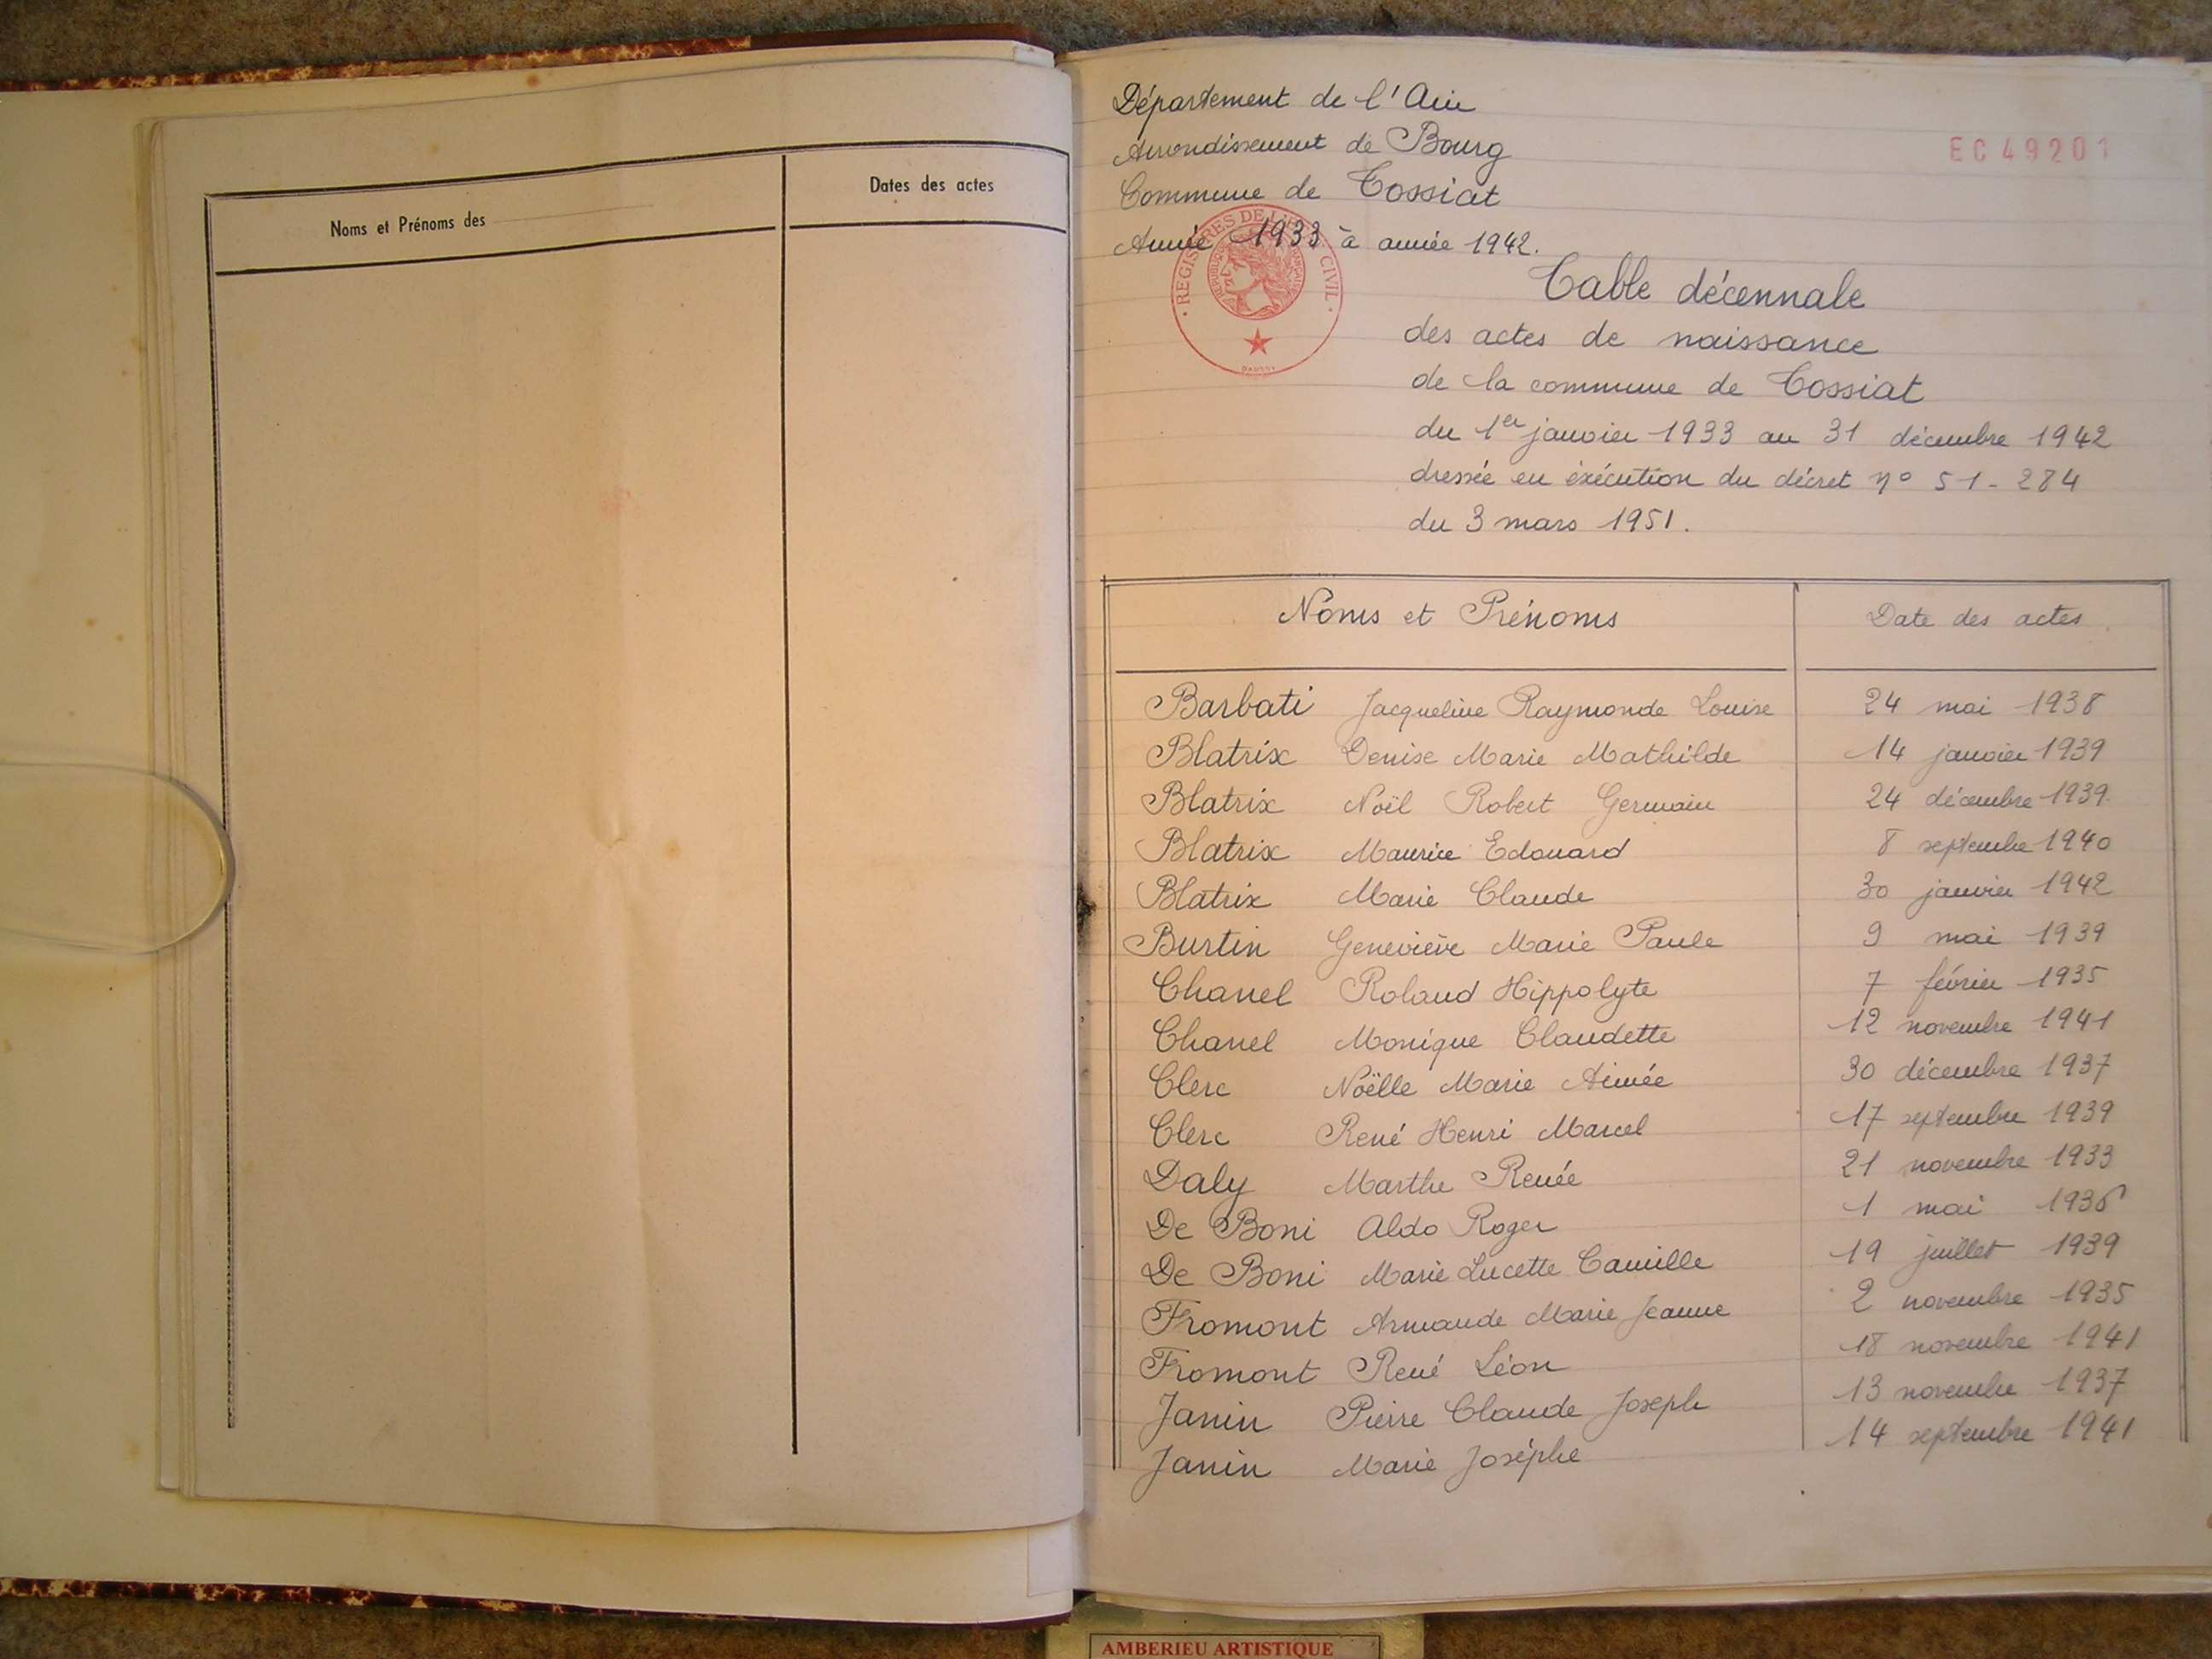 Noms et Prénoms des
Dates des actes
Département de l'Ain
Arrondissement de Bourg
EC 49201
Commune de Tossiat
Année 1933 à année 1942.
REGISTRES DE L'ÉTAT CIVIL
Table décennale
des actes de naissance
de la commune de Tossiat
du 1er janvier 1933 au 31 décembre 1942
dressée en éxécution du décret n° 51-284
du 3 mars 1951.
Noms et Prénoms Date des actes
Barbati Jacqueline Raymonde Louise 24 mai 1938
Blatrix Denise Marie Mathilde 14 janvier 1939
Blatrix Noël Robert Germain 24 décembre 1939
Blatrix Maurice Edouard 8 septembre 1940
Blatrix Marie Claude 30 janvier 1942
Burtin Geneviève Marie Paule 9 mai 1939
Chanel Roland Hippolyte 7 février 1935
Chanel Monique Claudette 12 novembre 1941
Clerc Noëlle Marie Aimée 30 décembre 1937
Clerc René Henri Marcel 17 septembre 1939
Daly Marthe Renée 21 novembre 1933
De Boni Aldo Roger 1 mai
De Boni Marie Lucette Camille 19 juillet 1939
Fromont Armande Marie Jeanne 2 novembre 1935
Fromont René Léon 18 novembre 1941
Janin Pierre Claude Joseph 13 novembre 1937
Janin Marie Josèphe 14 septembre 1941
AMBERIEU ARTISTIQUE